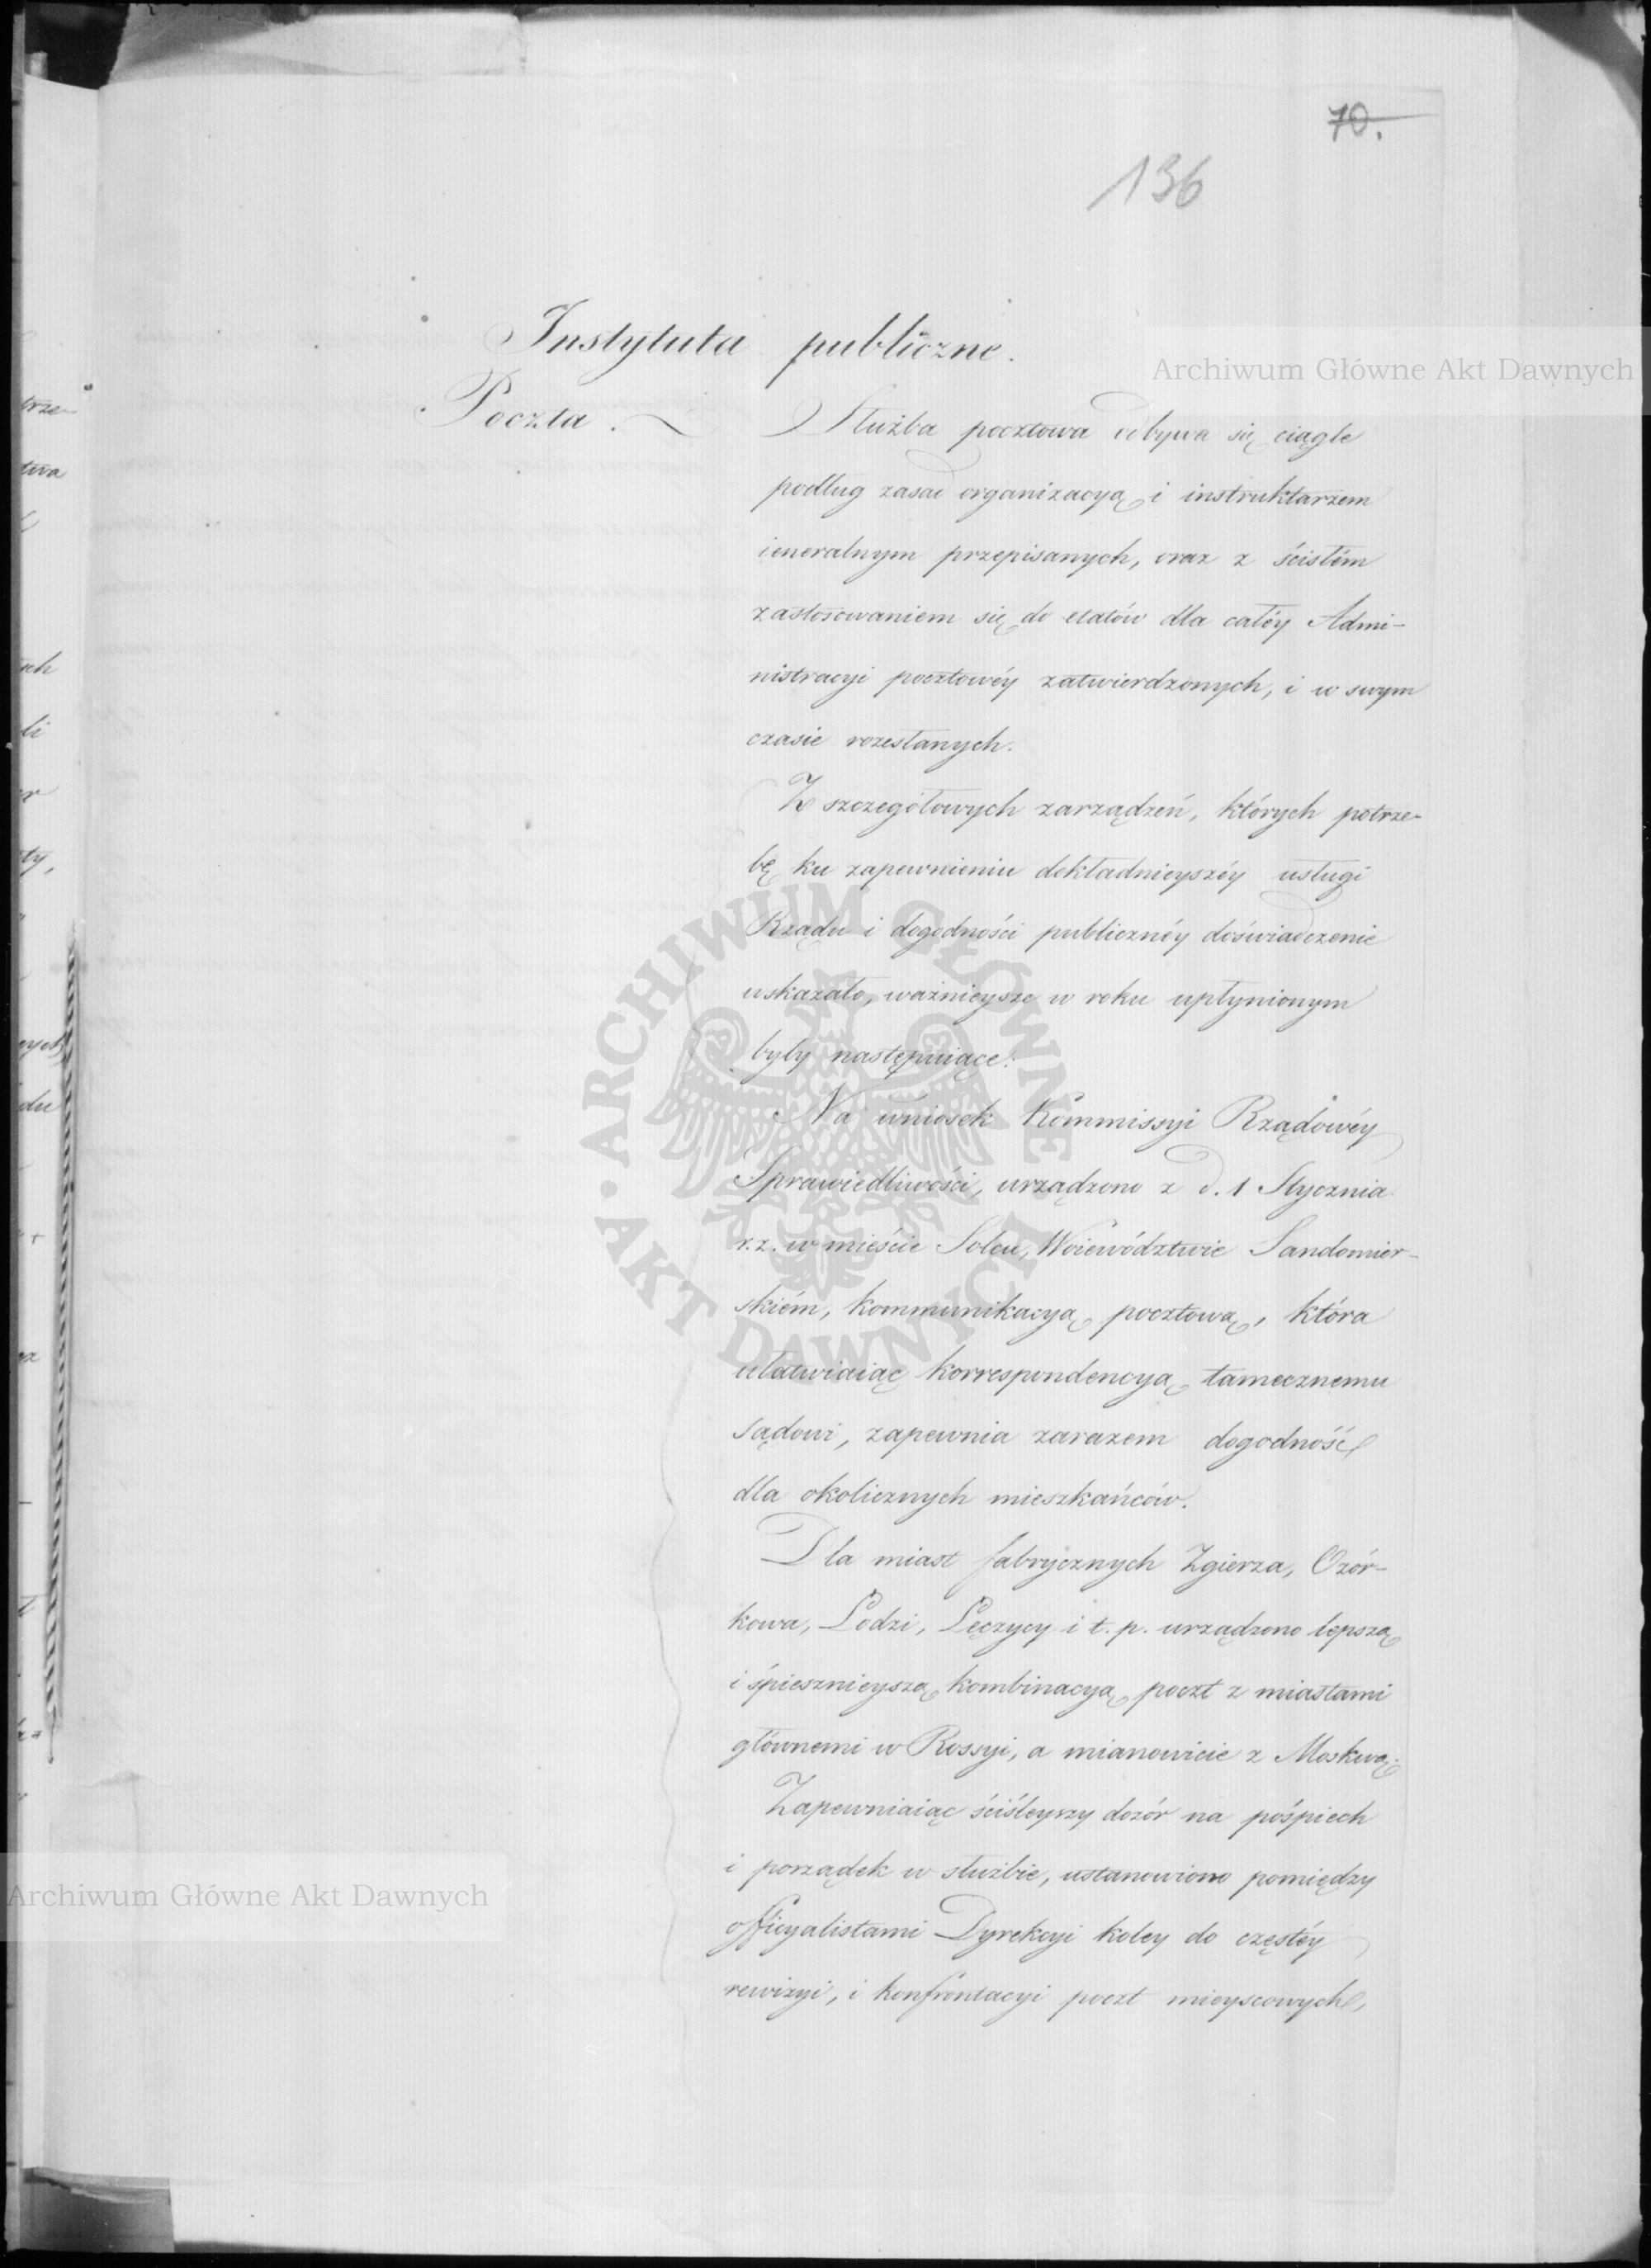 70.
136
Instytuta publiczne.
Poczta.
Służba pocztowa odbywa się ciągle
podług zasad organizacyą i instruktarzem
ieneralnym przepisanych, oraz z ścisłém
zastosowaniem się do etatów dla całéy Admi-
nistracyi pocztowéy zatwierdzonych, i w swym
czasie rozesłanych.
Z szczegółowych zarządzeń, których potrze-
bę ku zapewnieniu dokładnieyszéy usługi
Rządu i dogodności publicznéy doświadczenie
wskazało, ważnieysze w roku upłynionym
były następuiące:
Na wniosek Kommissyi Rządowéy
Sprawiedliwości, urządzono z d. 1 Stycznia
r.z. w mieście Solcu, Woiewództwie Sandomier-
skiém, kommunikacyą pocztową, która
ułatwiaiąc korrespondencyą tamecznemu
sądowi, zapewnia zarazem dogodność
dla okolicznych mieszkańców.
Dla miast fabrycznych Zgierza, Ozór-
kowa, Łodzi, Łęczycy i t. p. urządzono lepszą
i śpiesznieyszą kombinacyą poczt z miastami
głównemi w Rossyi, a mianowicie z Moskwą.
Zapewniaiąc ściśleyszy dozór na pośpiech
i porządek w służbie, ustanowiono pomiędzy
officyalistami Dyrekcyi koley do częstéy
rewizyi, i konfrontacyi poczt mieyscowych,
Archiwum Główne Akt Dawnych
Archiwum Główne Akt Dawnych
ARCHIWUM GŁÓWNE AKT DAWNYCH